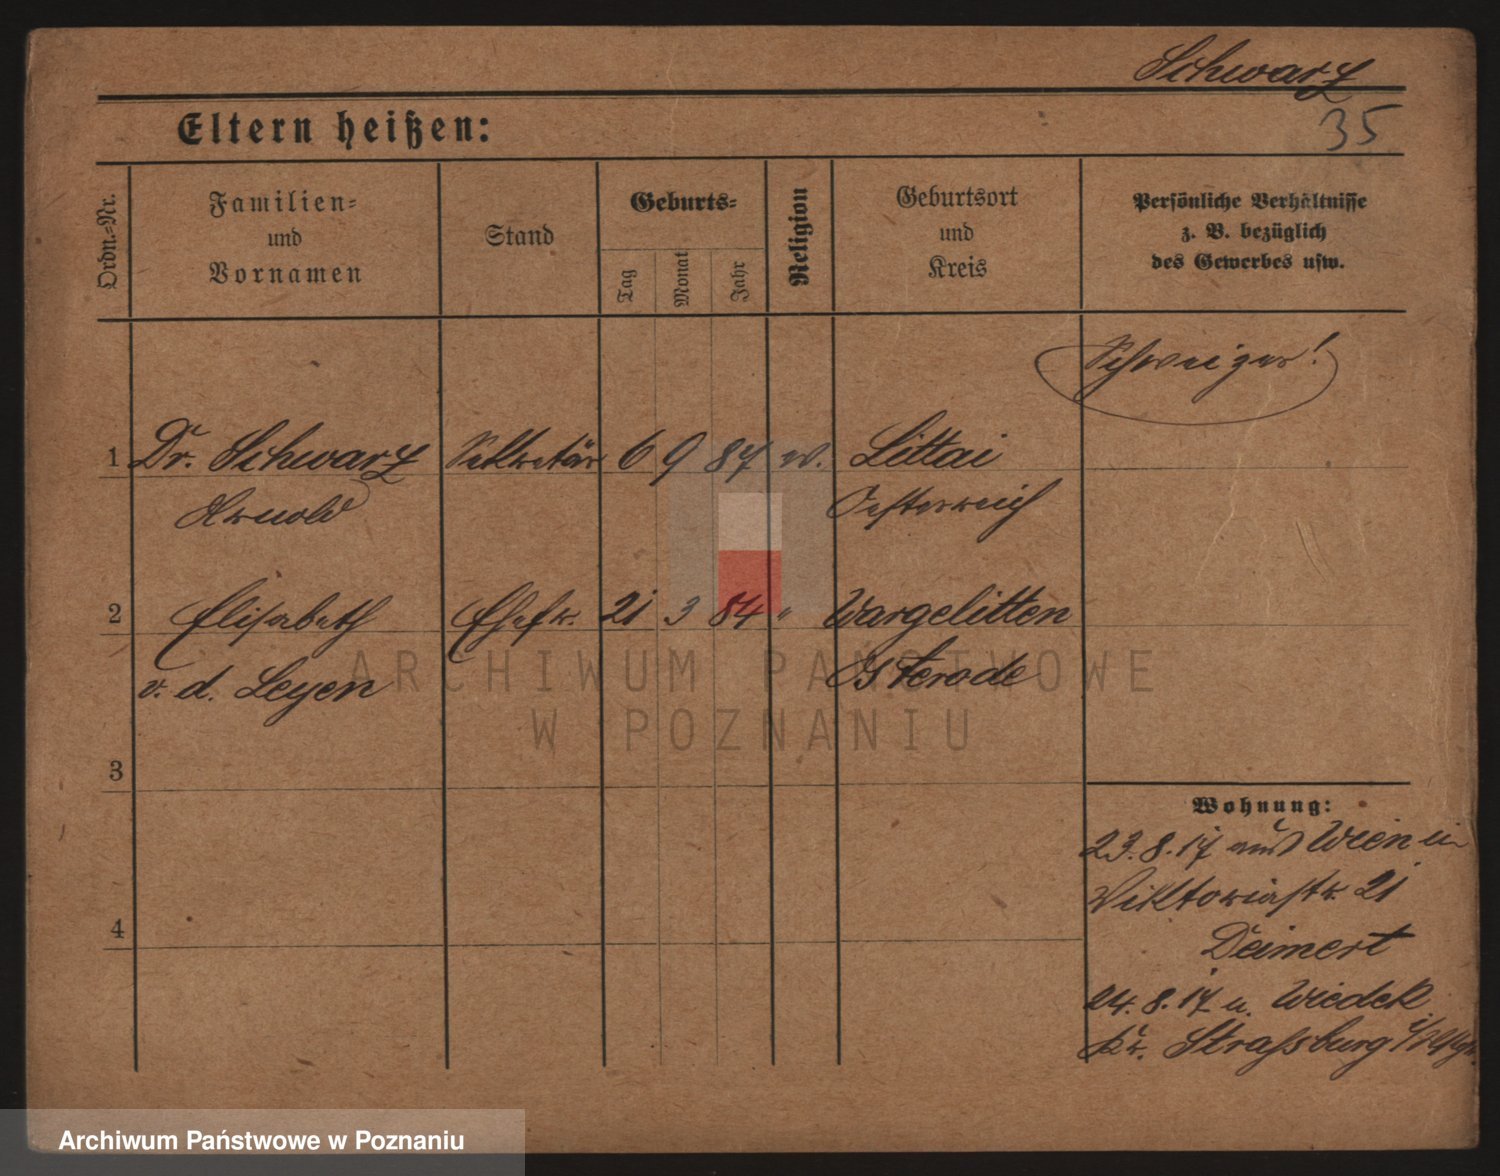 Schwarz
35
Eltern heißen:
Ordn.-Nr.
Familien-
und
Vornamen
Stand
Geburts-
Tag
Monat
Jahr
Religion
Geburtsort
und
Kreis
Persönliche Verhältnisse
z. B. bezüglich
des Gewerbes usw.
Schweizer!
1 Dr. Schwarz Sekretär 6 9 87 Littai
Arnold Oesterreich
2 Elisabeth Ehefr. 21 3 84 " Wargelitten
v. d. Leyen Osterode
3
4
Wohnung:
23.8.17 aus Wien in
Viktoriastr. 21
Deimert
24.8.17 n. Wiedek
Kr. Strassburg
ARCHIWUM PAŃSTWOWE
W POZNANIU
Archiwum Państwowe w Poznaniu